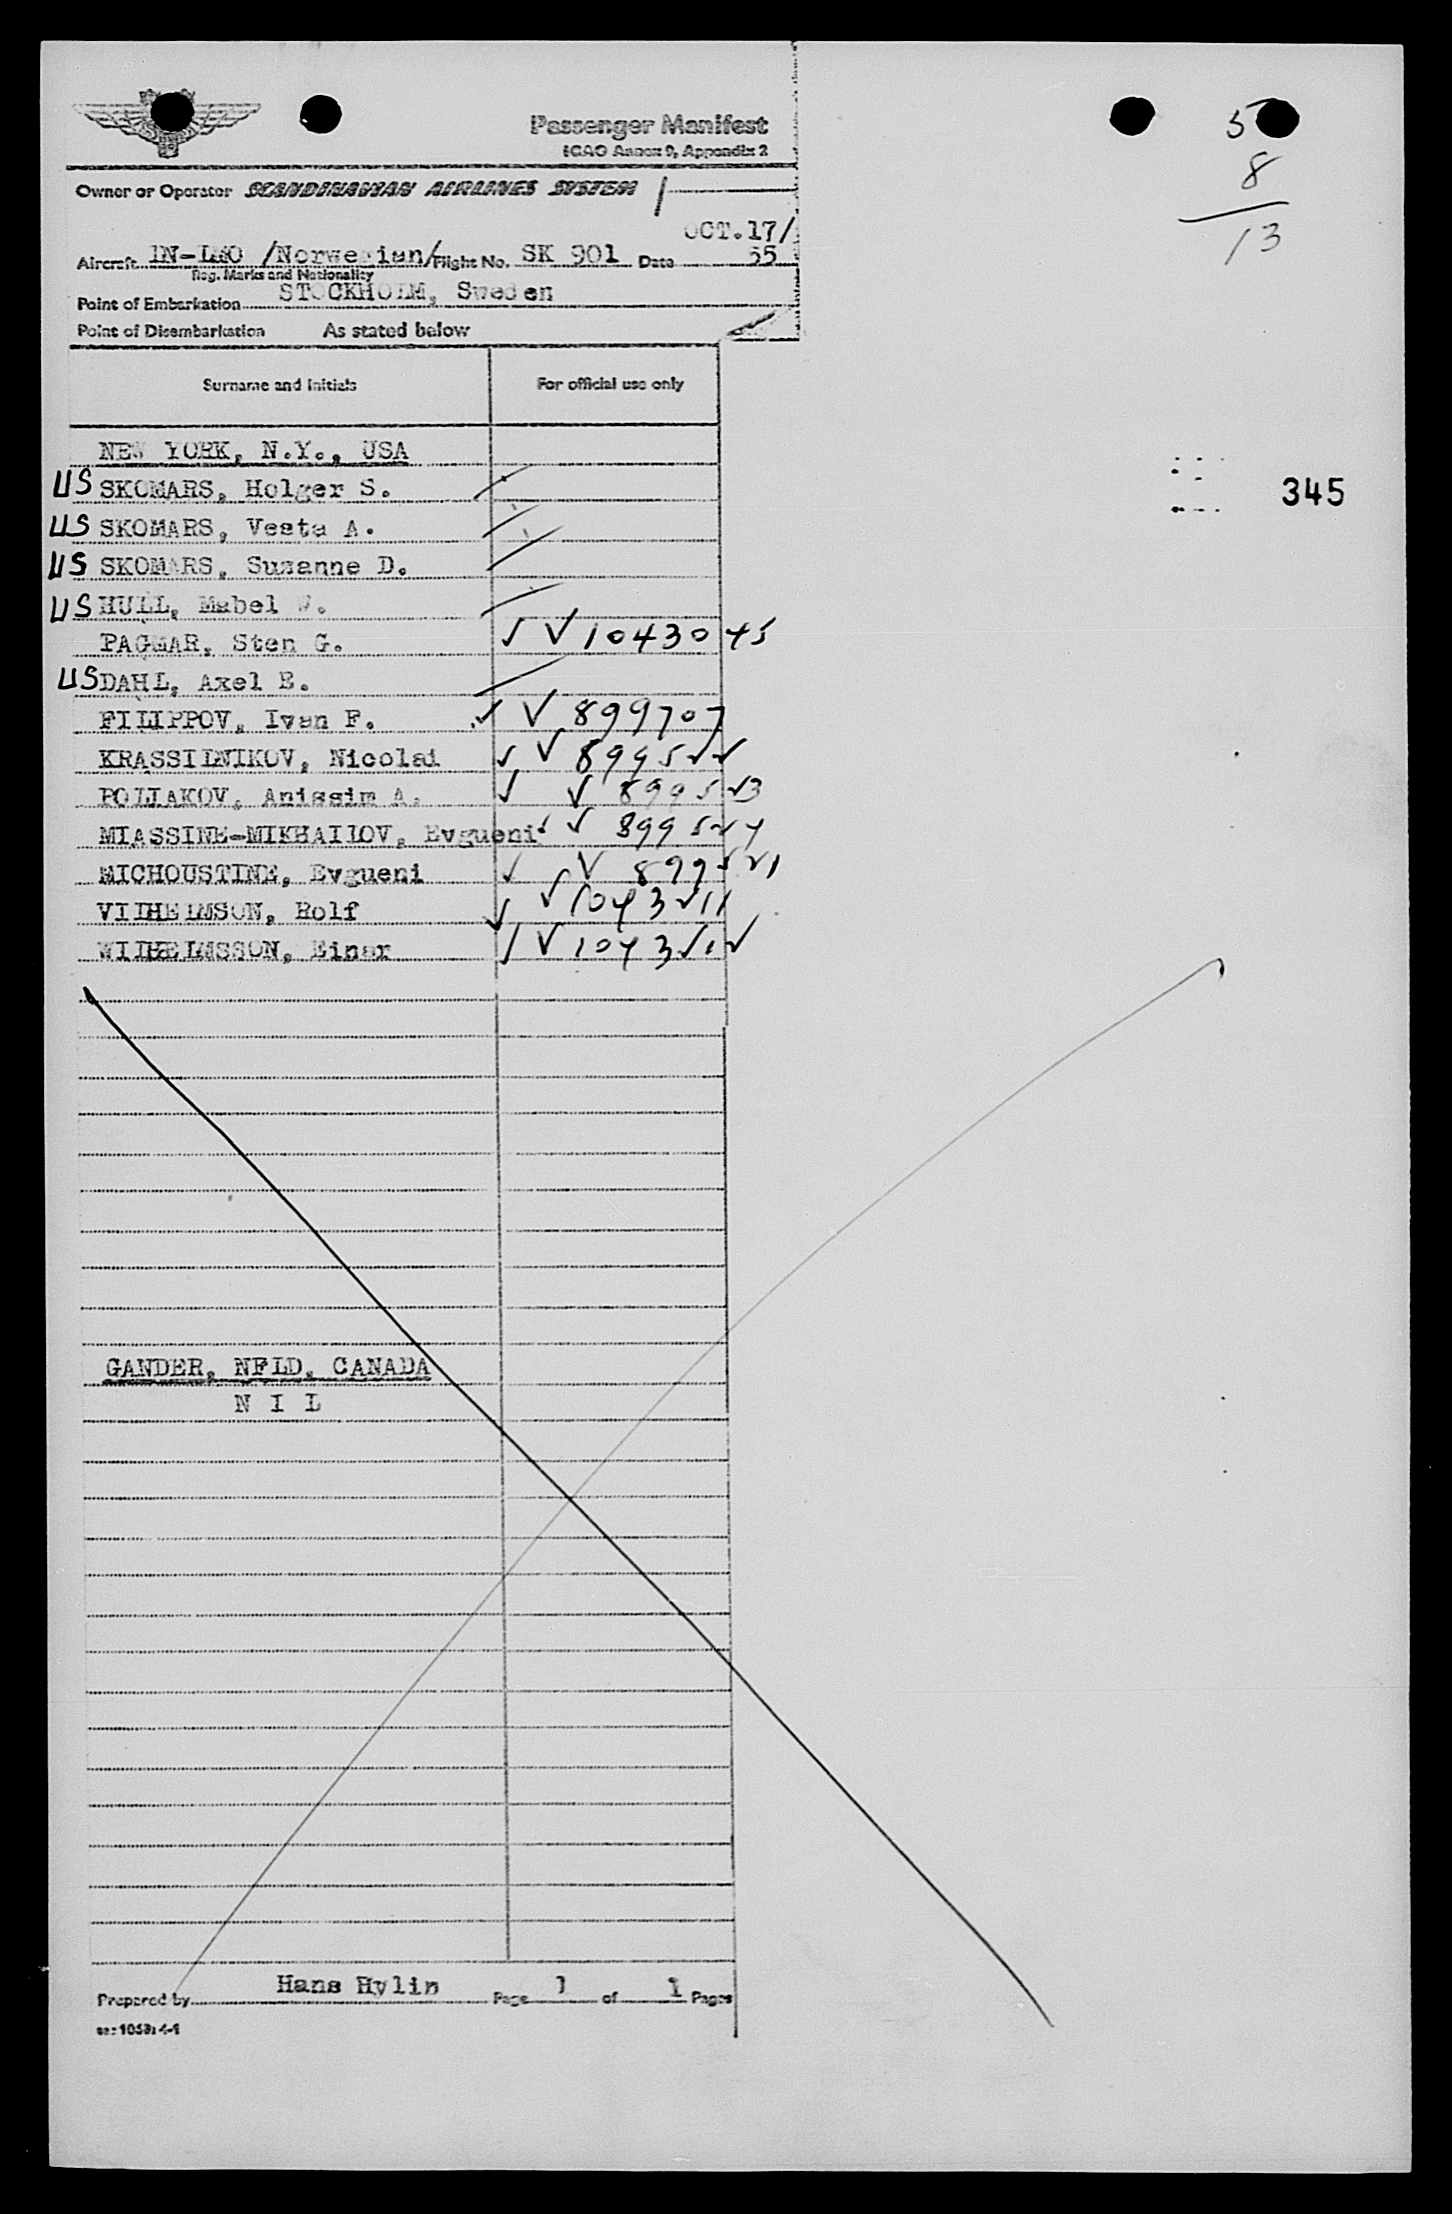 5
8
13
Passenger Manifest
ICAO Annex 9, Appendix 2
Owner or Operator SCANDINAVIAN AIRLINES SYSTEM
OCT.17/
Aircraft LN-LMO /Norwegian/ Flight No. SK 901 Date 55
Reg. Marks and Nationality
Point of Embarkation STOCKHOLM, Sweden
Point of Disembarkation As stated below
Surname and initials For official use only
NEW YORK, N.Y., USA
345
US SKOMARS, Holger S.
US SKOMARS, Vesta A.
US SKOMARS, Suzanne D.
US HULL, Mabel W.
PAGMAR, Sten G. ✓ ✓ 1043045
US DAHL, Axel E.
FILIPPOV, Ivan F. ✓ ✓ 899707
KRASSILNIKOV, Nicolai ✓ ✓ 899522
POLIAKOV, Anissim A. ✓ ✓ 899523
MIASSINE-MIKHAILOV, Evgueni ✓ ✓ 899524
MICHOUSTINE, Evgueni ✓ ✓ 899521
VILHELMSON, Rolf ✓ ✓ 1043211
WILHELMSSON, Einar ✓ ✓ 1043212
GANDER, NFLD, CANADA
N I L
Prepared by Hans Hylin Page 1 of 1 Pages